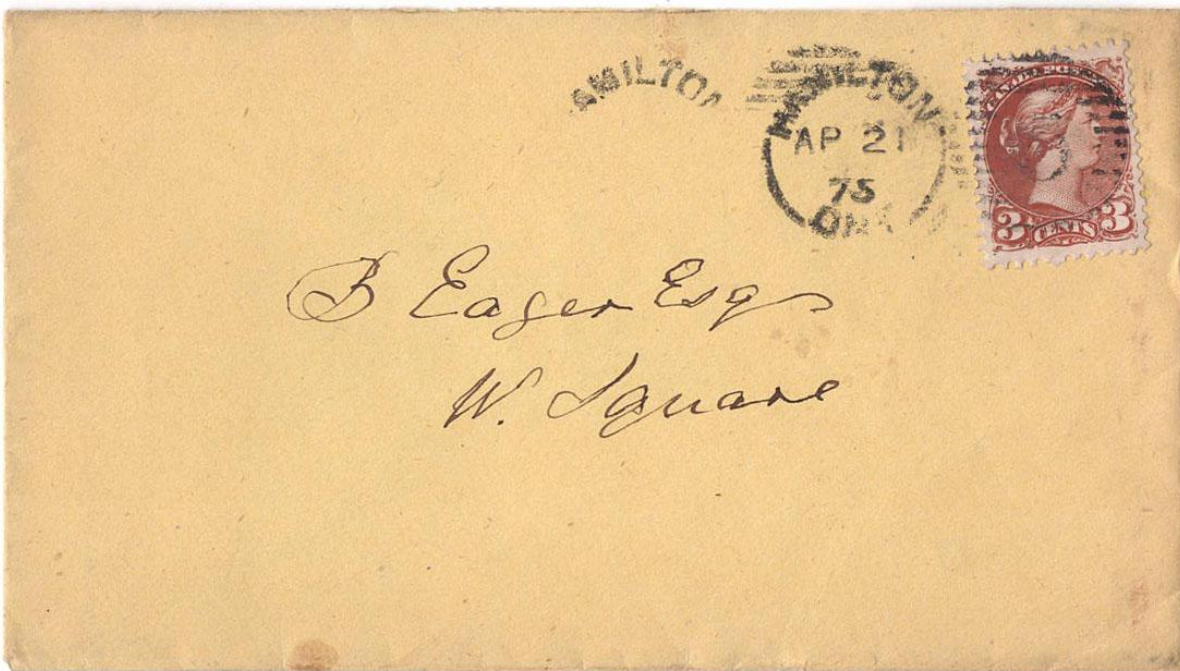 AMILTO
HAMILTON
AP 21
75
ONT
CANADA POSTAGE
3 CENTS 3
B Eager Esq
W. Square